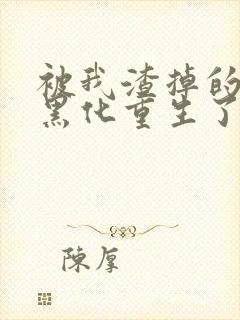 被我渣掉的
黑化重生了
陳厚